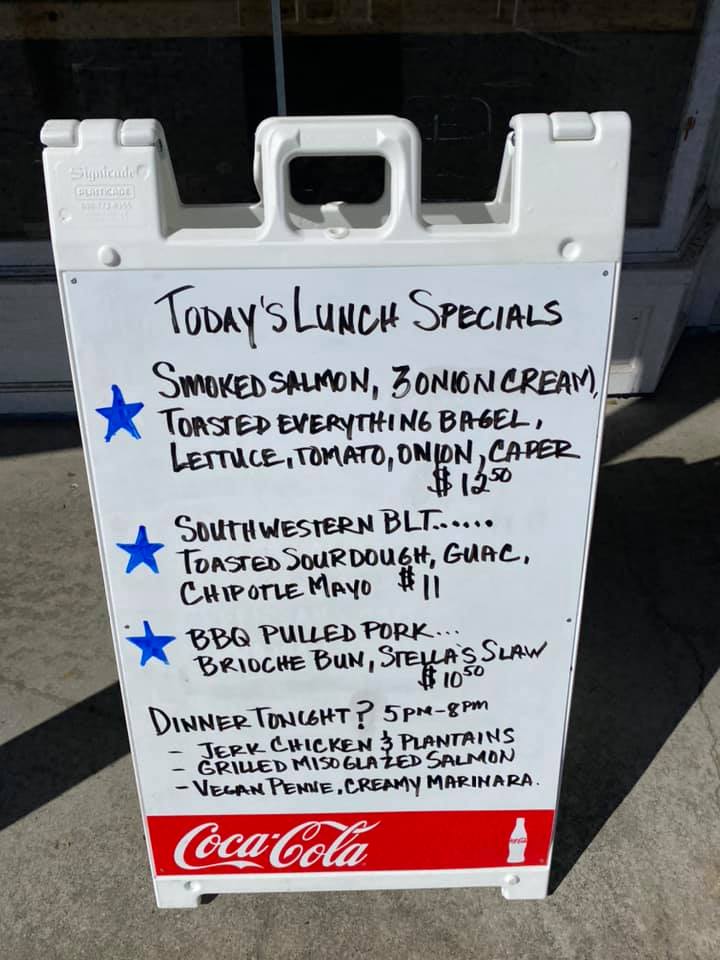 Signicade
PLASTICADE
TODAY'S LUNCH SPECIALS
SMOKED SALMON, 3 ONION CREAM),
TOASTED EVERYTHING BAGEL,
LETTUCE, TOMATO, ONION, CAPER
$12.50
SOUTHWESTERN BLT......
TOASTED SOURDOUGH, GUAC,
CHIPOTLE MAYO $11
BBQ PULLED PORK...
BRIOCHE BUN, STELLA'S SLAW
$10.50
DINNER TONIGHT? 5PM-8PM
- JERK CHICKEN & PLANTAINS
- GRILLED MISO GLAZED SALMON
- VEGAN PENNE, CREAMY MARINARA.
Coca-Cola